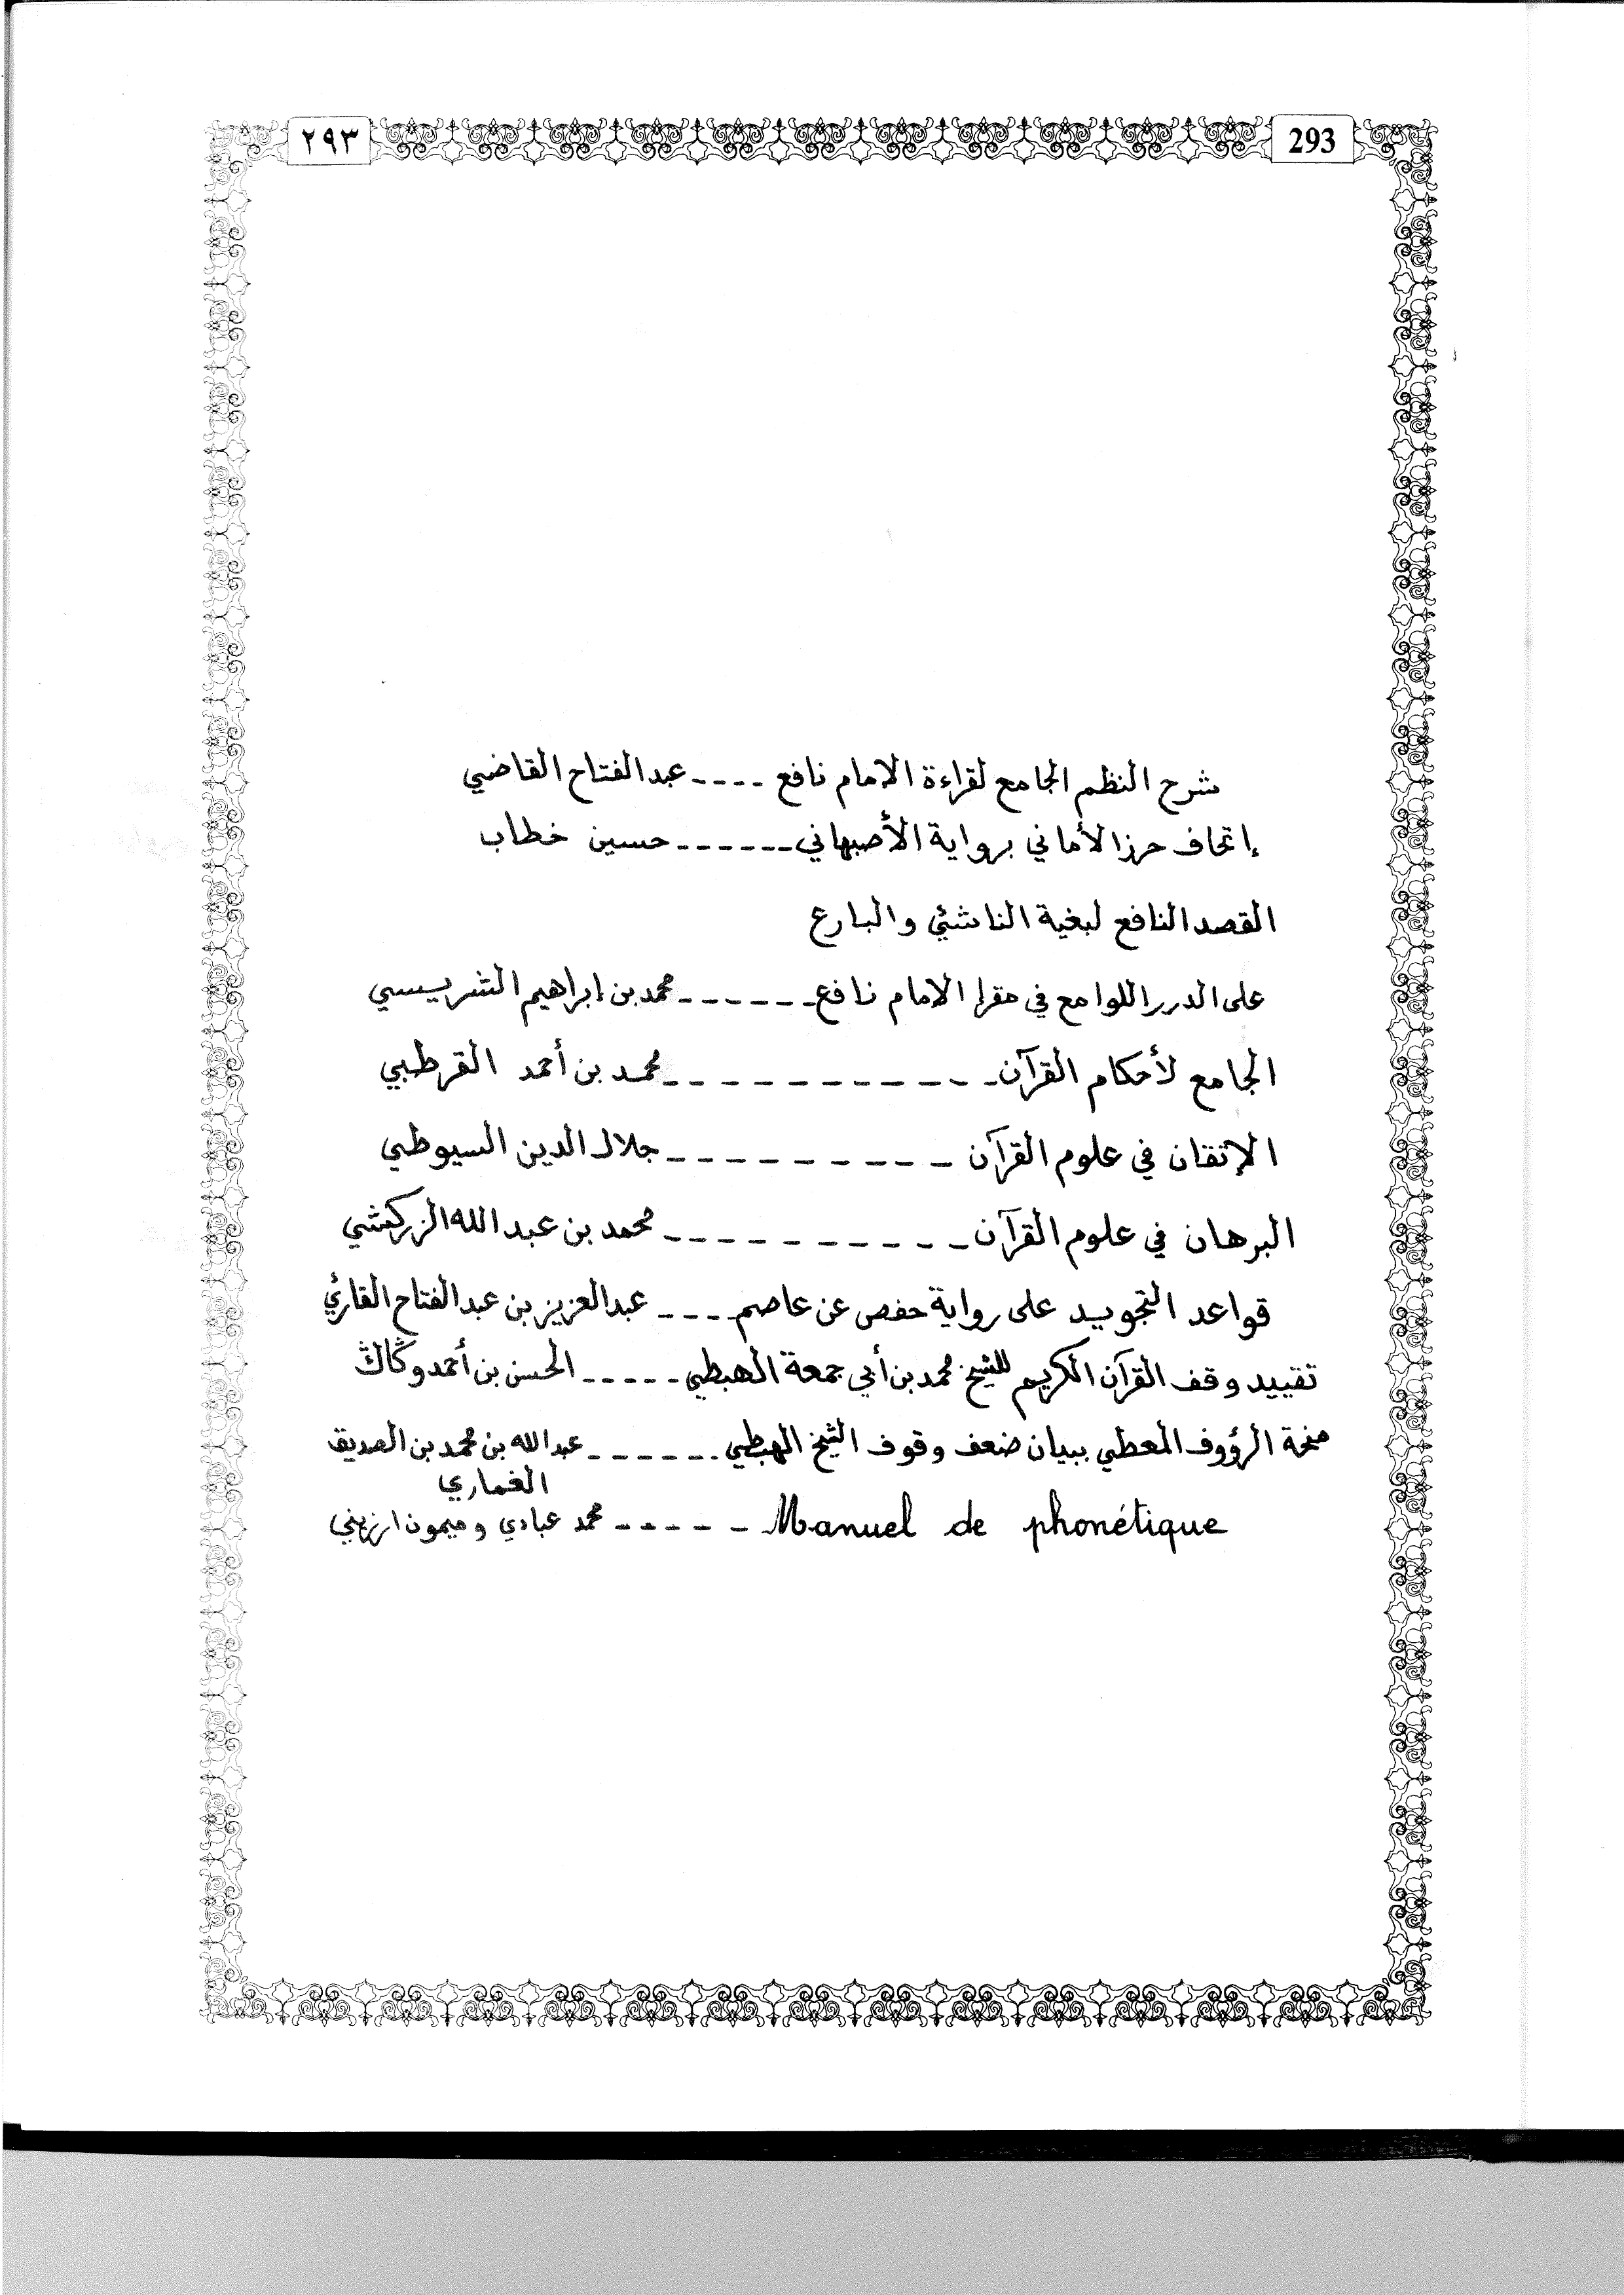 ٢٩٣ 293
شرح النظم الجامع لقراءة الامام نافع ---- عبد الفتاح القاضي
إتحاف حرز الأماني برواية الأصبهاني ------ حسين خطاب
القصد النافع لبغية الناشئ والبارع
على الدرر اللوامع في مقرإ الامام نافع ------ محمد بن إبراهيم الشريسي
الجامع لأحكام القرآن ----------- محمد بن أحمد القرطبي
الإتقان في علوم القرآن ---------- جلال الدين السيوطي
البرهان في علوم القرآن ---------- محمد بن عبد الله الزركشي
قواعد التجويد على رواية حفص عن عاصم ---- عبد العزيز بن عبد الفتاح القارئ
تقييد وقف القرآن الكريم للشيخ محمد بن أبي جمعة الهبطي ----- الحسن بن أحمد وݣاݣ
منحة الرؤوف المعطي ببيان ضعف وقوف الشيخ الهبطي ------ عبد الله بن محمد بن الصديق
الغماري
Manuel de phonétique ------ محمد عبادي وميمون ازهيني